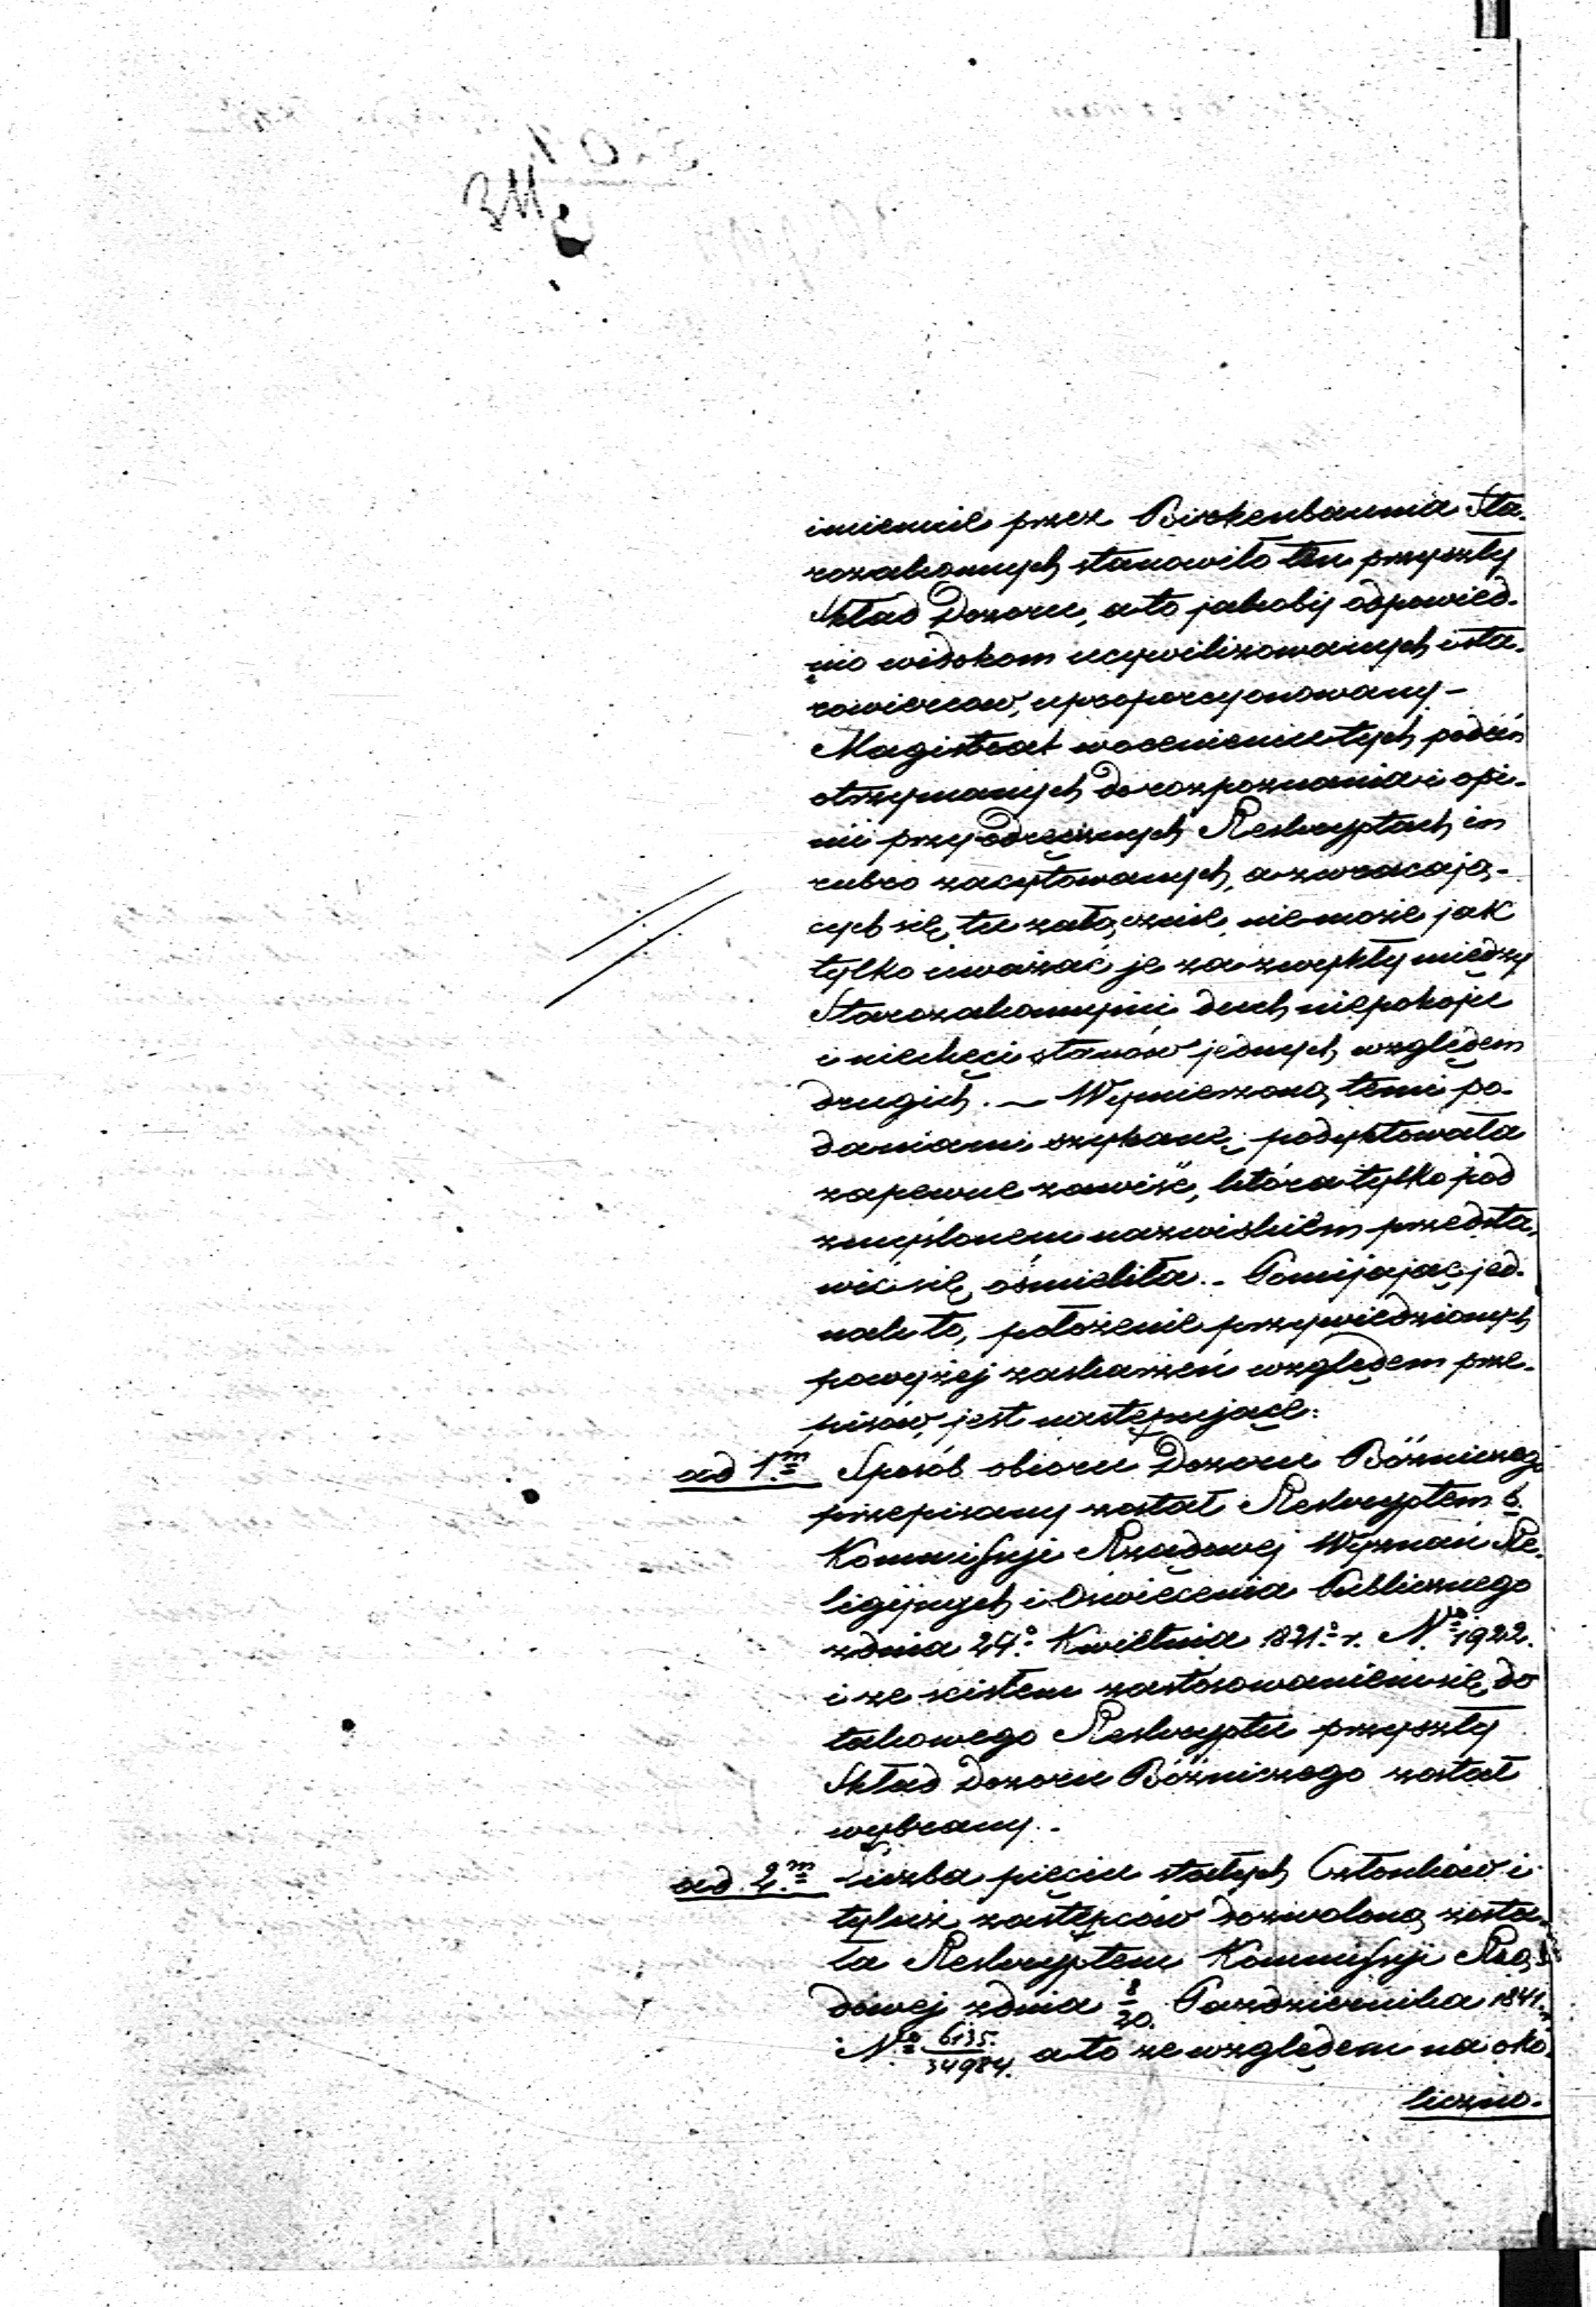 imiennie przez Birkenbauma Sta-
rozakonnych stanowiło ten przyszły
Skład Dozoru, a to jakoby odpowied-
nio widokom ucywilizowanych i sta-
rowiercow, uproporcyonowany –
Magistrat w ocenieniu tych podań
otrzymanych do rozpoznania i opi-
nii przy odręcznych Reskryptach in
rubro zacytowanych, a zwracają-
cych się tu załącznie, nie może jak
tylko uważać je za zwykły między
Starozakonnymi duch niepokoju
i niechęci stanów jednych względem
drugich. — Wymierzoną temi po-
daniami szykanę, podyktowała
zapewne zawiść, która tylko pod
zmyślonem nazwiskiem przedsta-
wić się ośmieliła. – Pomijając jed-
nak to, położenie przywiedzionych
powyżej zaskarzeń względem prze-
pisów, jest następujące:
ad 1m Sposób obioru Dozoru Bóżniczego
przepisany został Reskryptem b.
Kommissyi Rządowej Wyznań Re-
ligijnych i Oświecenia Publicznego
z dnia 24o Kwietnia 1821o r. No 1922.
i ze scisłem zastosowaniem się do
takowego Reskryptu przyszły
Skład Dozoru Bóżniczego został
wybrany. –
ad 2m Liczba pięciu stałych Członków i
tyluż zastępców dozwoloną zosta-
ła Reskryptem Kommissyi Rzą-
dowej z dnia 8/20. Pazdziernika 1841 r.
No 6135./34984. a to ze względem na oko-
liczno-